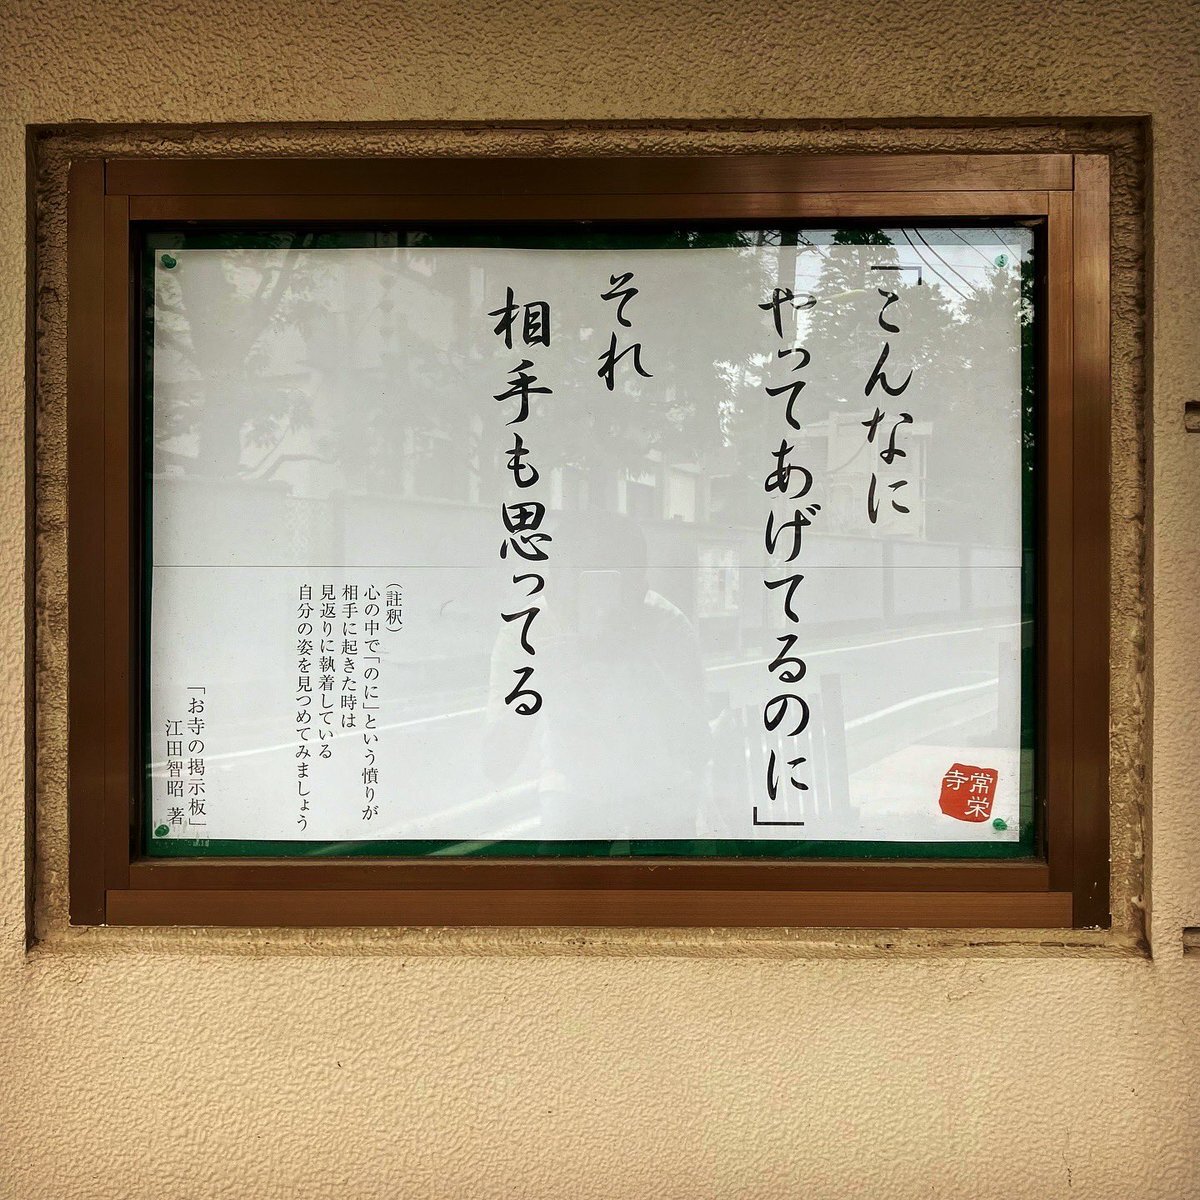 「こんなに
やってあげてるのに」
それ
相手も思ってる
(註釈)
心の中で「のに」という憤りが
相手に起きた時は
見返りに執着している
自分の姿を見つめてみましょう
「お寺の掲示板」
江田智昭 著
常栄
寺